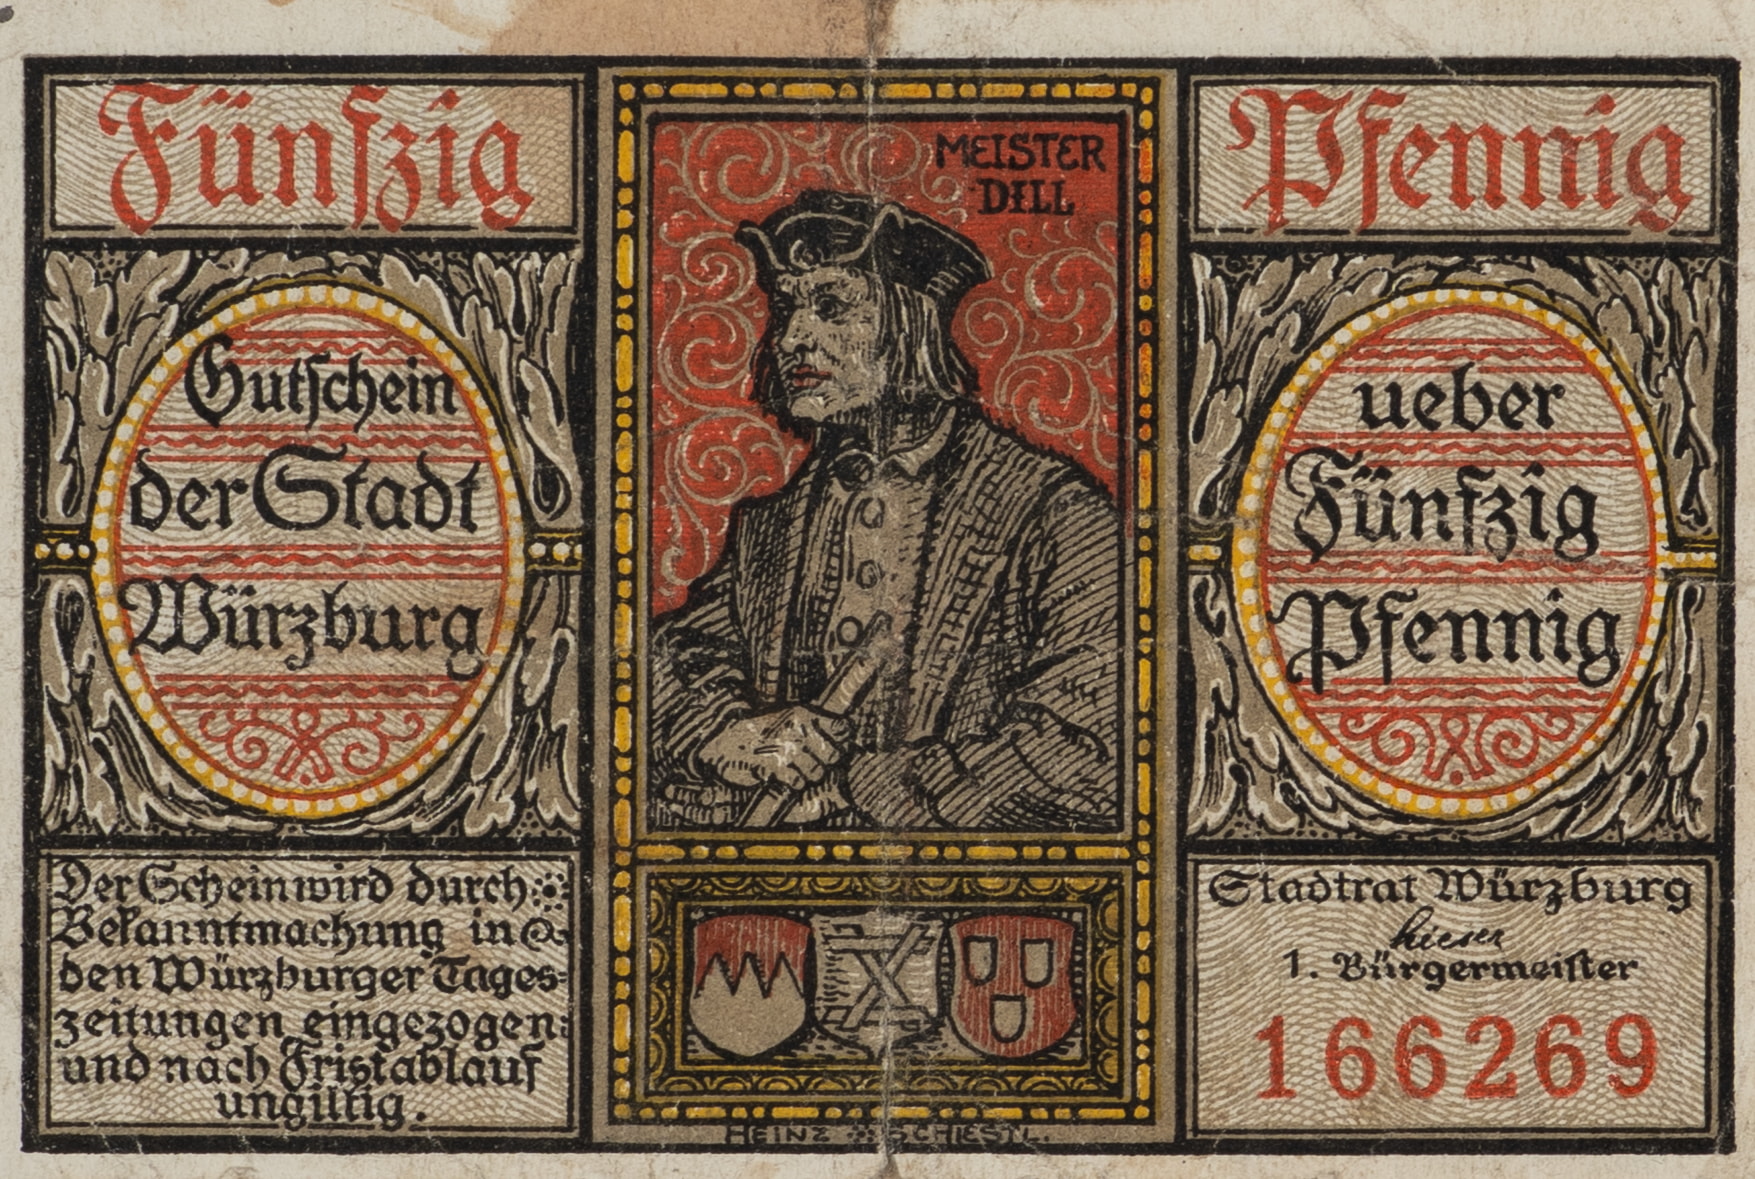 Fünfzig
Gutschein
der Stadt
Würzburg
Der Schein wird durch
Bekanntmachung in
den Würzburger Tages=
zeitungen eingezogen
und nach Fristablauf
ungiltig.
MEISTER
DILL
HEINZ SCHIESTL.
Pfennig
ueber
Fünfzig
Pfennig
Stadtrat Würzburg
1. Bürgermeister
166269